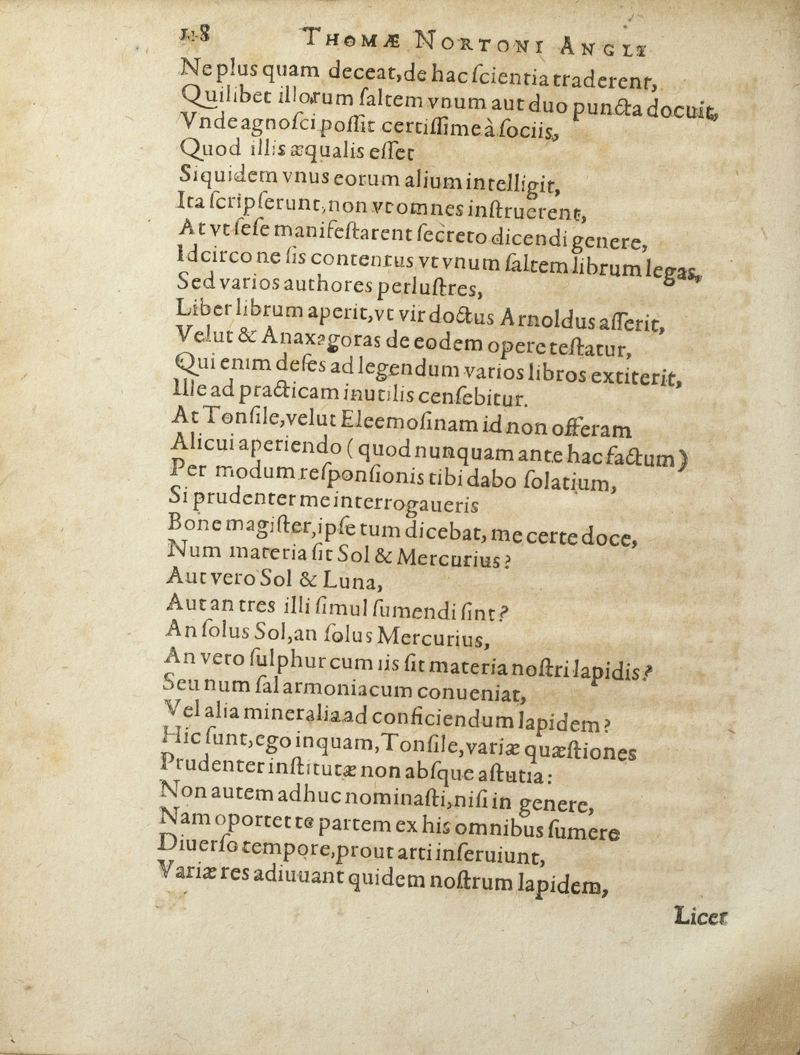 118 THOMÆ NORTONI ANGLI
Ne plus quam deceat, de hac ſcientia traderent,
Quilibet illorum ſaltem vnum aut duo puncta docuit,
Vnde agnoſci poſſit certiſſime à ſociis,
Quod illis æqualis eſſet
Siquidem vnus eorum alium intelligit,
Ita ſcripſerunt, non vt omnes inſtruerent,
At vt ſeſe manifeſtarent ſecreto dicendi genere,
Idcirco ne ſis contentus vt vnum ſaltem librum legas,
Sed varios authores perluſtres,
Liber librum aperit, vt vir doctus Arnoldus aſſerit,
Velut & Anaxagoras de eodem opere teſtatur,
Qui enim deſes ad legendum varios libros extiterit,
Ille ad practicam inutilis cenſebitur.
At Tonſile, velut Eleemoſinam id non offeram
Alicui aperiendo ( quod nunquam ante hac factum )
Per modum reſponſionis tibi dabo ſolatium,
Si prudenter me interrogaueris
Bone magiſter, ipſe tum dicebat, me certe doce,
Num materia ſit Sol & Mercurius?
Aut vero Sol & Luna,
Aut an tres illi ſimul ſumendi ſint?
An ſolus Sol, an ſolus Mercurius,
An vero ſulphur cum iis ſit materia noſtri lapidis?
Seu num ſal armoniacum conueniat,
Vel alia mineralia ad conficiendum lapidem?
Hic ſunt, ego inquam, Tonſile, variæ quæſtiones
Prudenter inſtitutæ non abſque aſtutia:
Non autem adhuc nominaſti, niſi in genere,
Nam oportet te partem ex his omnibus ſumere
Diuerſo tempore, prout arti inſeruiunt,
Variæ res adiuuant quidem noſtrum lapidem,
Licet